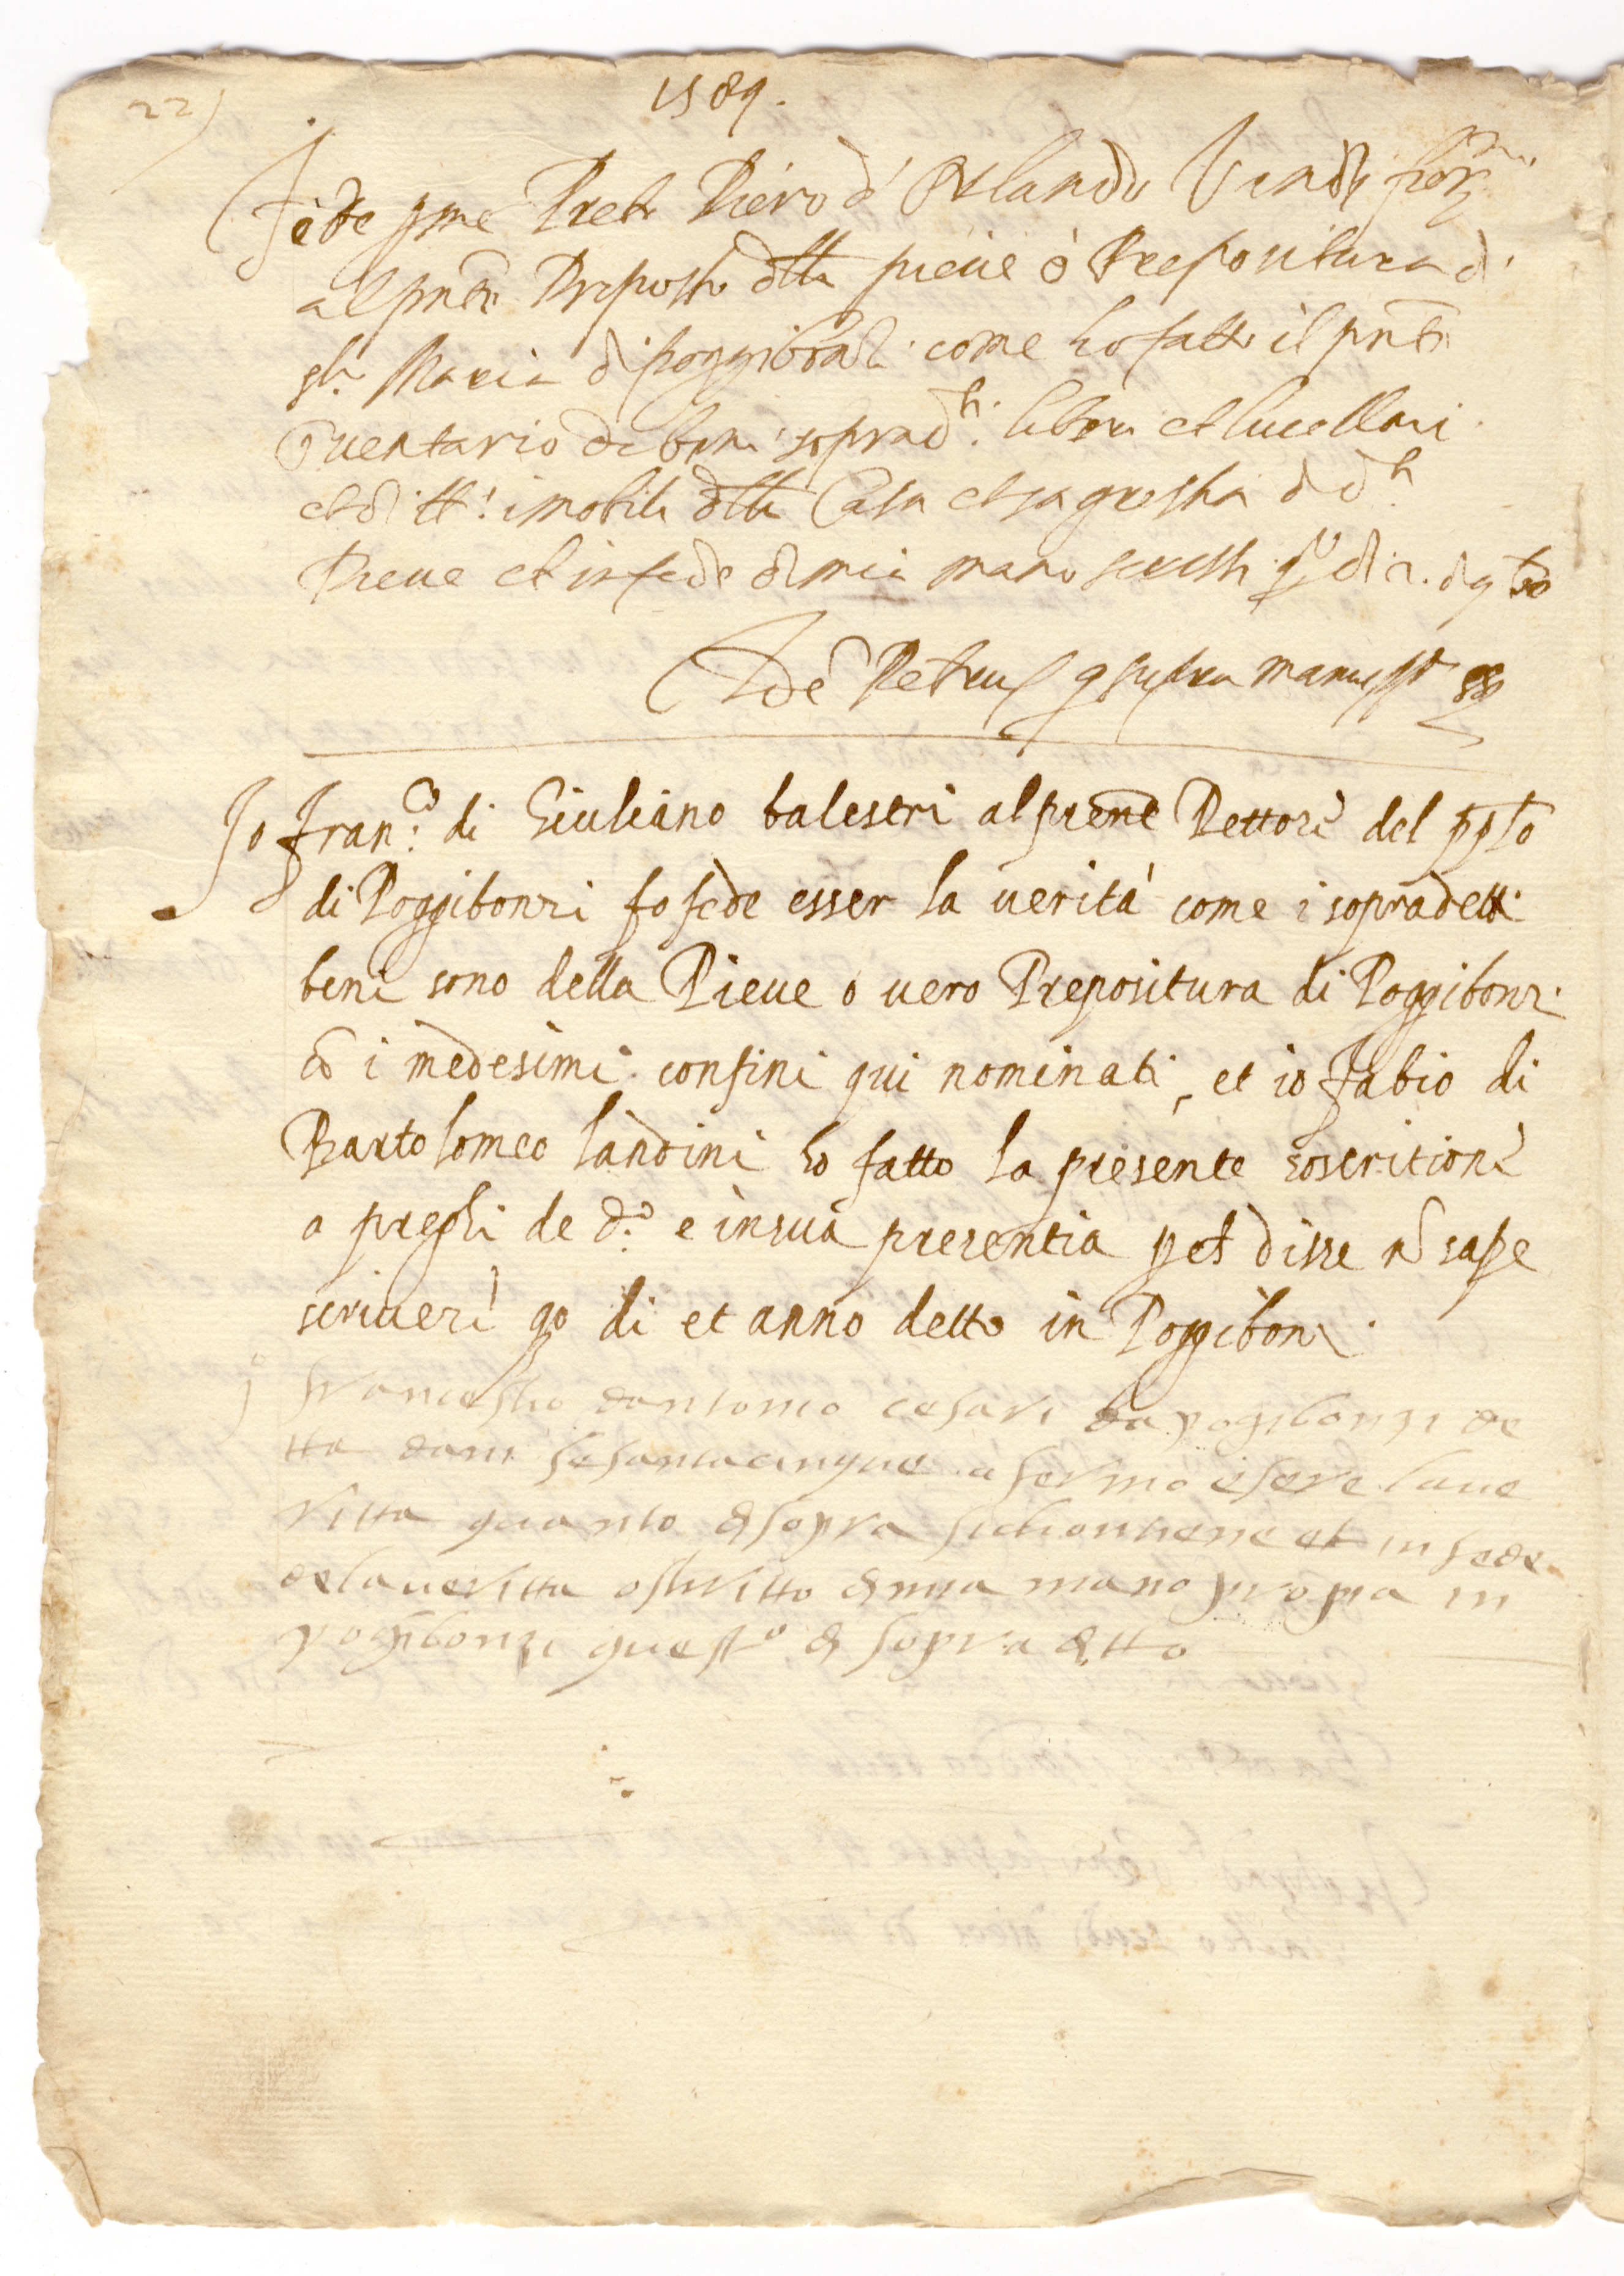 22)
1589.
Fede p me Prete Piero d' Orlando
al pnte Proposto dlla pieue ò Prepositura di
Sta Maria di poggibonzi come ho fatto il pnte
Inuentario de beni sopradti liberi et liuellari
et di tti i mobili dlla Casa et sagrestia di dta
Pieue et in fede di mia mano scrissi
Idē Petrus q supra manu ppa
Io Franco di Giuliano balestri al presente Rettore del pplo
di Poggibonzi fo fede esser la uerità come i sopradetti
beni sono della Pieue o uero Prepositura di Poggibonzi
cō i medesimi confini qui nominati, et io Fabio di
Bartolomeo landini ho fatto la presente soscritione
a preghi de do e in sua presentia disse nō sape
scriuere qo di et anno detto in Poggibonzi
io francescho dantonio cesari da pogibonzi de
tta danni sesantacinque afermo esere laue
ritta quanto di sopra si chontiene et in fede
dela ueritta o schritto di mia mano propia in
pogibonzi questo di sopra ditto